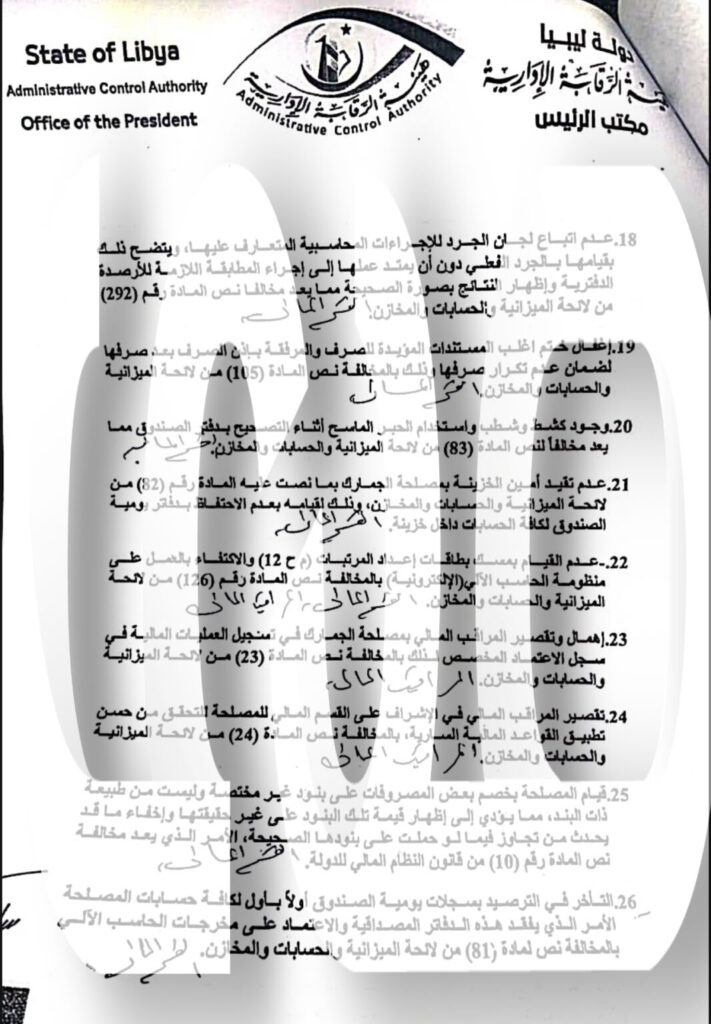 State of Libya
Administrative Control Authority
Office of the President
هيئة الرقابة الإدارية
Administrative Control Authority
دولة ليبيا
هيئة الرقابة الإدارية
مكتب الرئيس
18.عدم اتباع لجان الجرد للإجراءات المحاسبية المتعارف عليها، ويتضح ذلك
بقيامها بالجرد الفعلي دون أن يمتد عملها إلى إجراء المطابقة اللازمة للأرصدة
الدفترية وإظهار النتائج بصورة الصحيحة مما يعد مخالفا نص المادة رقم (292)
من لائحة الميزانية والحسابات والمخازن.
19.إغفال ختم اغلب المستندات المؤيدة للصرف والمرفقة بإذن الصرف بعد صرفها
لضمان عدم تكرار صرفها وذلك بالمخالفة نص المادة (105) من لائحة الميزانية
والحسابات والمخازن.
20.وجود كشط وشطب واستخدام الحبر الماسح أثناء التصحيح بدفتر الصندوق مما
يعد مخالفاً لنص المادة (83) من لائحة الميزانية والحسابات والمخازن.
21.عدم تقيد أمين الخزينة بمصلحة الجمارك بما نصت عليه المادة رقم (82) من
لائحة الميزانية والحسابات والمخازن، وذلك لقيامه بعدم الاحتفاظ بدفاتر يومية
الصندوق لكافة الحسابات داخل خزينة.
22.-عدم القيام بمسك بطاقات إعداد المرتبات (م ح 12) والاكتفاء بالعمل على
منظومة الحاسب الآلي(الإلكترونية) بالمخالفة نص المادة رقم (126) من لائحة
الميزانية والحسابات والمخازن.
23.إهمال وتقصير المراقب المالي بمصلحة الجمارك في تسجيل العمليات المالية في
سجل الاعتماد المخصص لذلك بالمخالفة نص المادة (23) من لائحة الميزانية
والحسابات والمخازن. المراقب المالي
24.تقصير المراقب المالي في الإشراف على القسم المالي للمصلحة للتحقق من حسن
تطبيق القواعد المالية السارية، بالمخالفة نص المادة (24) من لائحة الميزانية
والحسابات والمخازن. المراقب المالي
25.قيام المصلحة بخصم بعض المصروفات على بنود غير مختصة وليست من طبيعة
ذات البند، مما يؤدي إلى إظهار قيمة تلك البنود على غير حقيقتها وإخفاء ما قد
يحدث من تجاوز فيما لو حملت على بنودها الصحيحة، الأمر الذي يعد مخالفة
نص المادة رقم (10) من قانون النظام المالي للدولة.
26.التأخر في الترصيد بسجلات يومية الصندوق أولاً بأول لكافة حسابات المصلحة
الأمر الذي يفقد هذه الدفاتر المصداقية والاعتماد على مخرجات الحاسب الآلي،
بالمخالفة نص لمادة (81) من لائحة الميزانية والحسابات والمخازن.